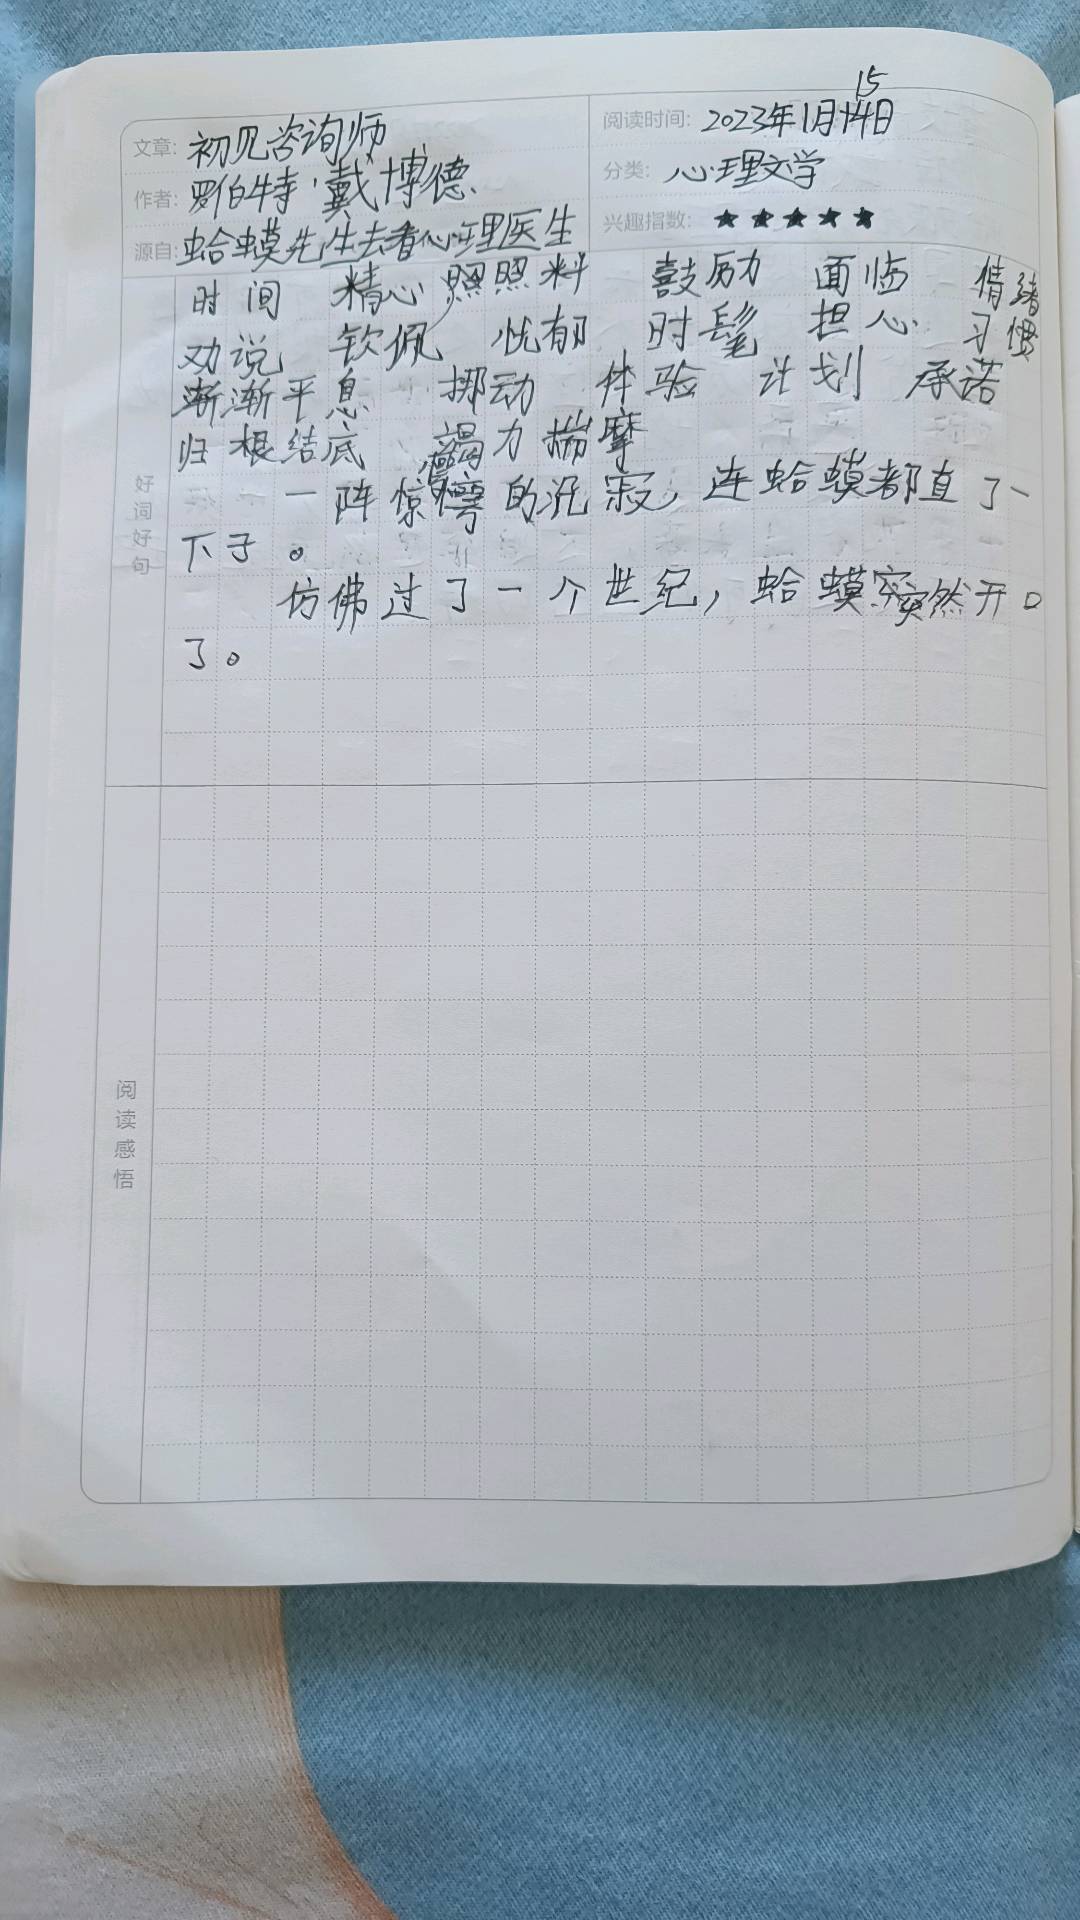 文章: 初见咨询师
作者: 罗伯特·戴博德
源自: 蛤蟆先生去看心理医生
阅读时间: 2023年1月15日
分类: 心理文学
兴趣指数: ★★★★★
好词好句
时间 精心照照料 鼓励 面临 情绪
劝说 钦佩 忧郁 时髦 担心 习惯
渐渐平息 挪动 体验 计划 承诺
归根结底 竭力揣摩
一阵惊愕的沉寂，连蛤蟆都直了一
下子。
仿佛过了一个世纪，蛤蟆突然开口
了。
阅读感悟